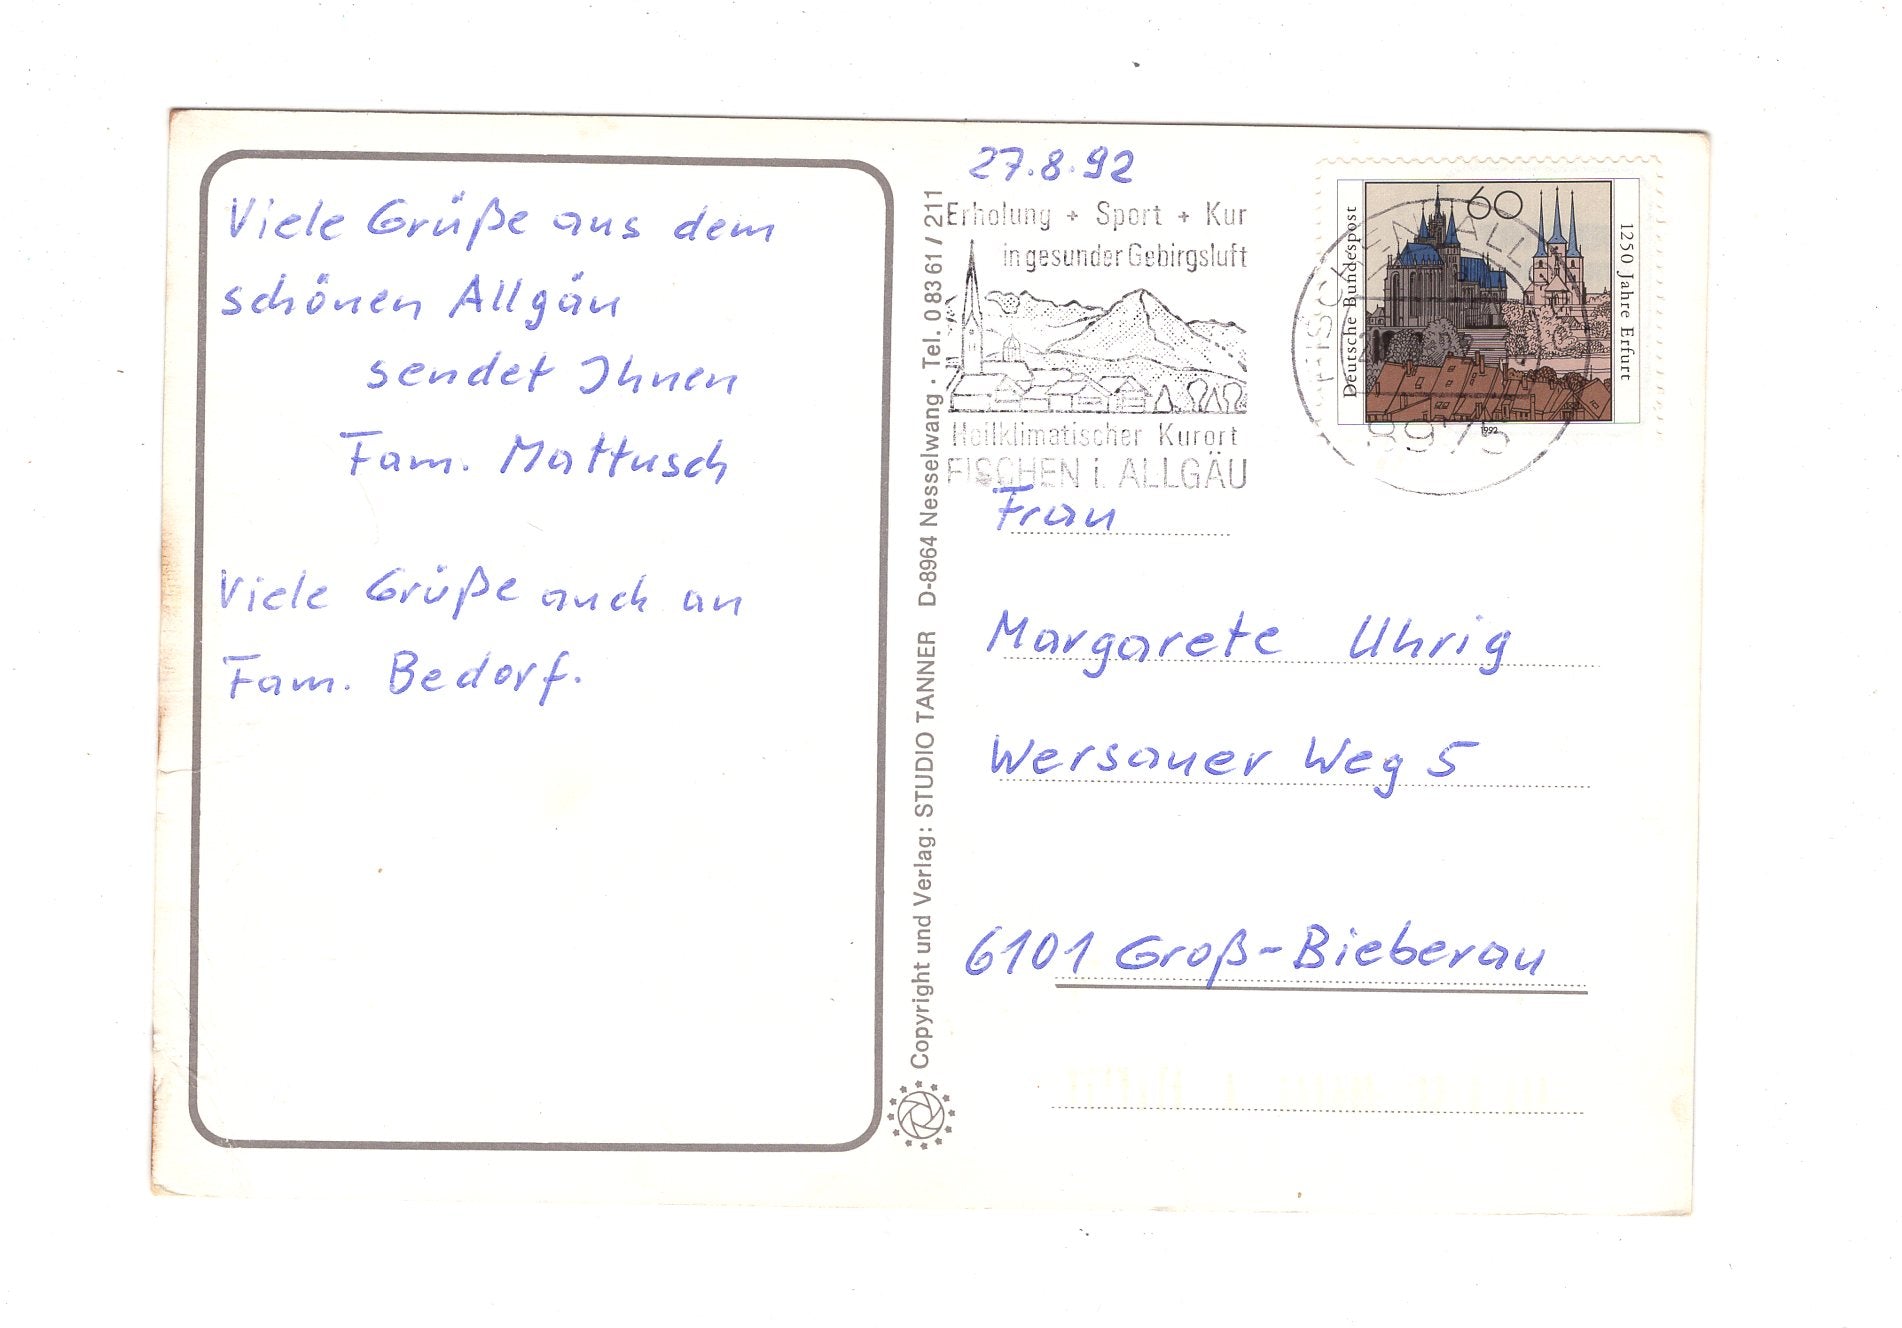 Viele Grüße aus dem
schönen Allgäu
sendet Ihnen
Fam. Mattusch
Viele Grüße auch an
Fam. Bedorf.
Copyright und Verlag: STUDIO TANNER D-8964 Nesselwang · Tel. 0 83 61 / 211
27.8.92
Erholung + Sport + Kur
in gesunder Gebirgsluft
Heilklimatischer Kurort
FISCHEN i. ALLGÄU
Deutsche Bundespost
60
1250 Jahre Erfurt
1992
FISCHEN ALL
8975
Frau
Margarete Uhrig
Wersauer Weg 5
6101 Groß-Bieberau